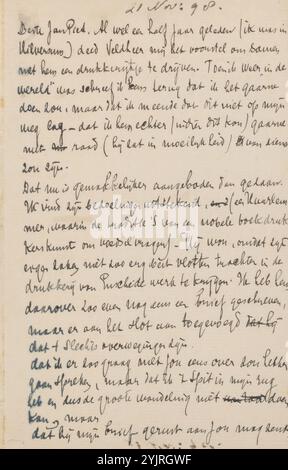 21 Nov: 98.
Beste Jan Piet. Al wel een half jaar geleden (ik was in
Hilversum) deed Veldheer mij het voorstel om samen
met hem een drukkerijtje te drijven. Toen ik weer in de
wereld was schreef ik hem terug dat ik het gaarne
doen zou, maar dat ik meende dat dit niet op mijn
weg lag – dat ik hem echter (indien dit kon) gaarne
met raad (bij dat in moeilijkheid) van dienst
zou zijn.
Dat nu is gemakkelijker aangeboden dan gedaan.
Ik vind zijn bedoeling uitstekend, (een Haarlem
mer, waarin de traditie's van een nobele boekdruk
kerskunst om voedsel vragen). Hij won, omdat zijn
eigen zaken niet zoo erg best vlotten trachten in de
drukkerij van Enschedé werk te krijgen. Ik heb hem
daarover zoo even nog eens een brief geschreven,
maar er aan het slot aan toegevoegd dat hij
dat 't slechts overwegingen zijn.
dat ik er zoo graag met jou eens over zou hebben
gaan spreken, maar dat ik 't spit in mijn rug
heb en dus de groote wandeling niet
kan, maar
dat hij mijn brief gerust aan jou mag
alamy
Image ID: 2WJRGWF
www.alamy.com